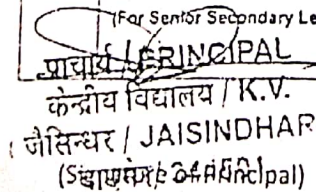 (For Senior Secondary Le
प्राचार्य / PRINCIPAL
केन्द्रीय विद्यालय / K.V.
जैसिन्धर / JAISINDHAR
(Signature of Principal)